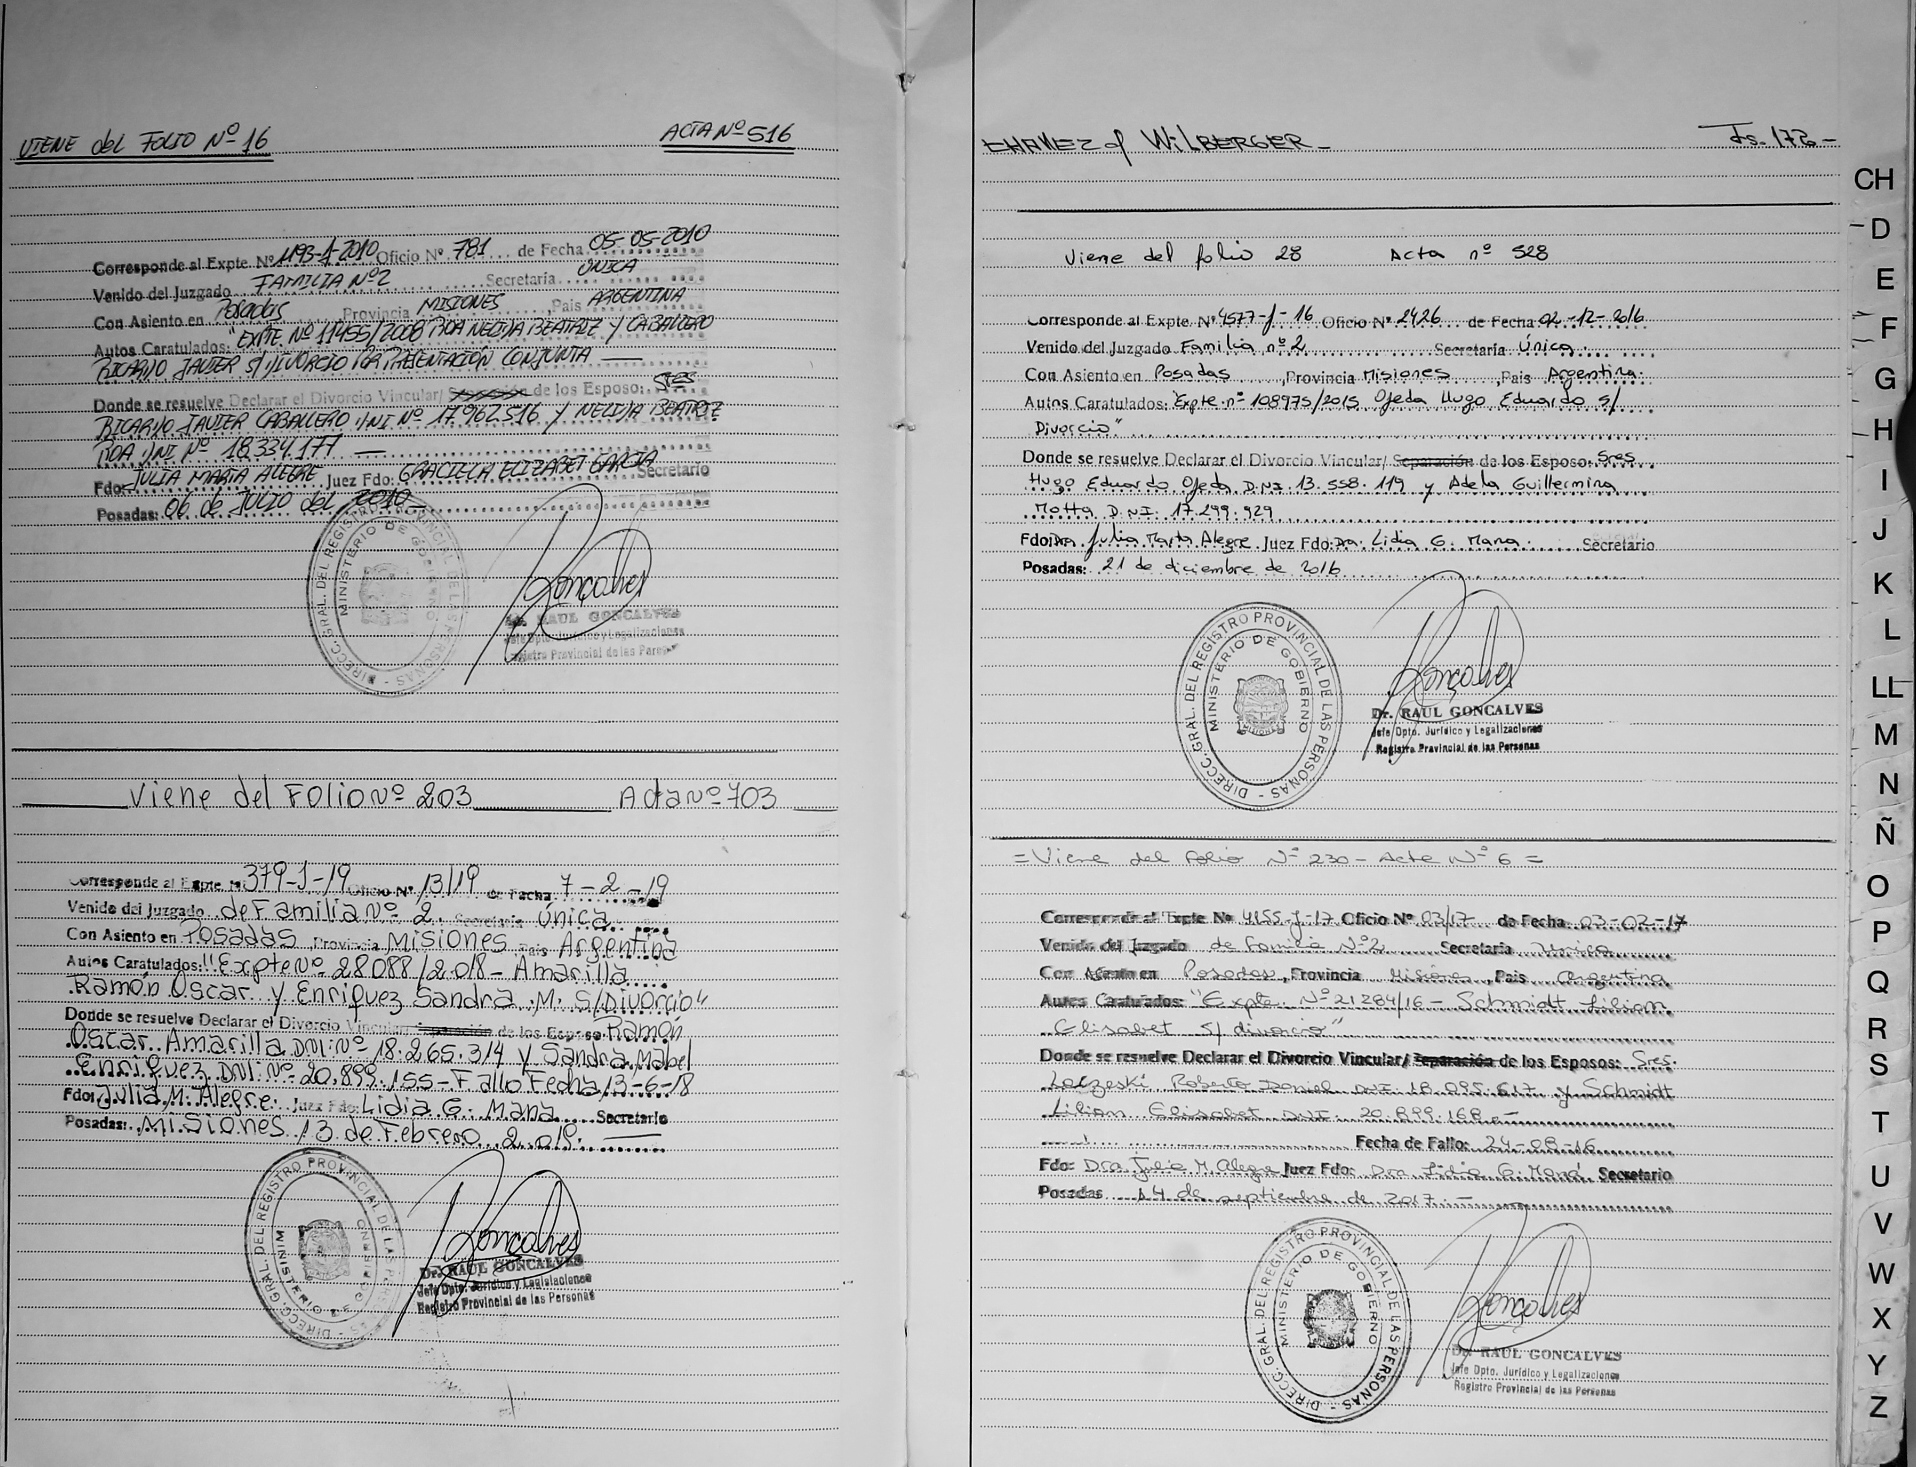 VIENE del FOLIO Nº 16 ACTA Nº 516
Corresponde al Expte. Nº 1193-J-2010 Oficio Nº 781 de Fecha 05-05-2010
Venido del Juzgado FAMILIA Nº 2 Secretaría ÚNICA
Con Asiento en Posadas Provincia MISIONES, País ARGENTINA
Autos Caratulados: "EXPTE Nº 11455/2008 ROA NELIDA BEATRIZ Y CABALLERO
RICARDO JAVIER S/ DIVORCIO POR PRESENTACIÓN CONJUNTA
Donde se resuelve Declarar el Divorcio Vincular/ Separación de los Esposo: Sres
RICARDO JAVIER CABALLERO DNI Nº 17.962.516 Y NELIDA BEATRIZ
ROA DNI Nº 18.334.177
Fdo: JULIA MARIA ALEGRE Juez Fdo: GRACIELA ELIZABET GARCIA Secretario
Posadas: 06 de JULIO del 2010
DIRECC. GRAL. DEL REGISTRO PROVINCIAL DE LAS PERSONAS
MINISTERIO DE GOBIERNO
Goncalves
Dr. RAUL GONCALVES
Jefe Dpto. Jurídico y Legalizaciones
Registro Provincial de las Pers
Viene del Folio Nº 203 Acta nº 703
Corresponde al Expte Nº 379-J-19 Oficio Nº 13/19 de Fecha 7-2-19
Venido del Juzgado de Familia Nº 2 Secretaría única
Con Asiento en Posadas, Provincia Misiones País Argentina
Autos Caratulados: "Expte Nº 28088/2018 - Amarilla
Ramón Oscar y Enriquez Sandra M. S/Divorcio"
Donde se resuelve Declarar el Divorcio Vincular/ Separación de los Esposo: Ramón
Oscar Amarilla DNI: Nº 18.265.314 y Sandra Mabel
Enriquez DNI: Nº 20.899.155 - Fallo Fecha 13-6-18
Fdo: Julia M. Alegre Juez Fdo: Lidia G. Mana Secretario
Posadas: Misiones 13 de Febrero 2.019.
DIRECC. GRAL. DEL REGISTRO PROVINCIAL DE LAS PERSONAS
MINISTERIO DE GOBIERNO
Goncalves
Dr. RAUL GONCALVES
Jefe Dpto. Jurídico y Legislaciones
Registro Provincial de las Personas
CHAVEZ c/ WILBERGER_ Fs. 172-
Viene del folio 28 Acta nº 528
Corresponde al Expte. Nº 4577-J-16 Oficio Nº 2426 de Fecha 02-12-2016
Venido del Juzgado Familia nº 2 Secretaría única.
Con Asiento en Posadas, Provincia Misiones, País Argentina.
Autos Caratulados: Expte. nº 108975/2015 Ojeda Hugo Eduardo s/
Divorcio"
Donde se resuelve Declarar el Divorcio Vincular/ Separación de los Esposo: Sres
Hugo Eduardo Ojeda D.N.I. 13.558.119 y Adela Guillermina
Motta D.N.I. 17.299.929
Fdo: Dra Julia Marta Alegre Juez Fdo: Dra. Lidia G. Mana. Secretario
Posadas: 21 de diciembre de 2016
DIRECC. GRAL. DEL REGISTRO PROVINCIAL DE LAS PERSONAS
MINISTERIO DE GOBIERNO
MISIONES
Goncalves
Dr. RAUL GONCALVES
Jefe Dpto. Jurídico y Legalizaciones
Registro Provincial de las Personas
= Viene del Folio Nº 230 - Acta Nº 6 =
Corresponde al Expte Nº 4155-J-17 Oficio Nº 03/17 de Fecha 03-02-17
Venido del Juzgado de Familia Nº 2 Secretaría Única
Con Asiento en Posadas, Provincia Misiones, País Argentina
Autos Caratulados: "Expte. Nº 21284/16 - Schmidt Lilian
Elisabet S/ divorcio"
Donde se resuelve Declarar el Divorcio Vincular/ Separación de los Esposos: Sres.
Roberto Daniel DNI. 18.095.617 y Schmidt
Lilian Elisabet DNI. 20.899.168.-
Fecha de Fallo: 24-08-16
Fdo: Dra. Julia M. Alegre Juez Fdo: Dra. Lidia G. Maná Secretario
Posadas 14 de septiembre de 2017.-
DIRECC. GRAL. DEL REGISTRO PROVINCIAL DE LAS PERSONAS
MINISTERIO DE GOBIERNO
Goncalves
Dr. RAUL GONCALVES
Jefe Dpto. Jurídico y Legalizaciones
Registro Provincial de las Personas
CH
D
E
F
G
H
I
J
K
L
LL
M
N
Ñ
O
P
Q
R
S
T
U
V
W
X
Y
Z